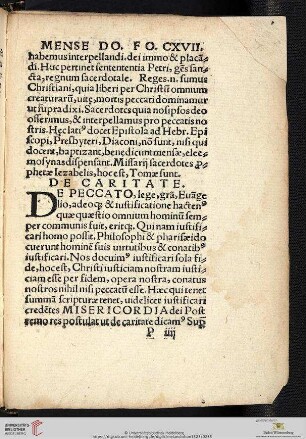 MENSE DO. FO. CXVII.
habemus interpellandi. dei immo & placā
di. Huc pertinet sententia Petri, gēs san
cta, regnum sacerdotale. Reges. n. sumus
Christiani, quia liberi per Christū omnium
creaturarū, uitę, mortis peccati dominamur
ut supra dixi. Sacerdotes quia nos ipsos deo
offerimus, & interpellamus pro peccatis no
stris. Hęc latiꝰ docet Epistola ad Hebr. Epi
scopi, Presbyteri, Diaconi, nō sunt, nisi qui
docent, baptizant, benedicunt mensæ, elee
mosynas dispensant. Missarij sacerdotes ꝓ
phetæ Iezabelis, hoc est, Romæ sunt.
DE CARITATE.
DE PECCATO, lege, grā, Euāge
lio, adeoq; & iustificatione hactenꝰ
quæ quæstio omnium hominū sem
per communis fuit, eritq;. Qui nam iustifi
cari homo possit. Philosophi & pharisæi do
cuerunt hominē suis uirtutibus & conatibꝰ
iustificari. Nos docuimꝰ iustificari sola fi
de, hoc est, Christi iusticiam nostram iusti-
ciam esse per fidem, opera nostra, conatus
nostros nihil nisi peccatū esse. Hæc qui tenet
summā scripturæ tenet, uidelicet iustificari
credētes MISERICORDIA dei Post
remo res postulat ut de caritate dicamꝰ Sup̄
P iiij
UNIVERSITÄTS-
BIBLIOTHEK
HEIDELBERG
© Universitätsbibliothek Heidelberg